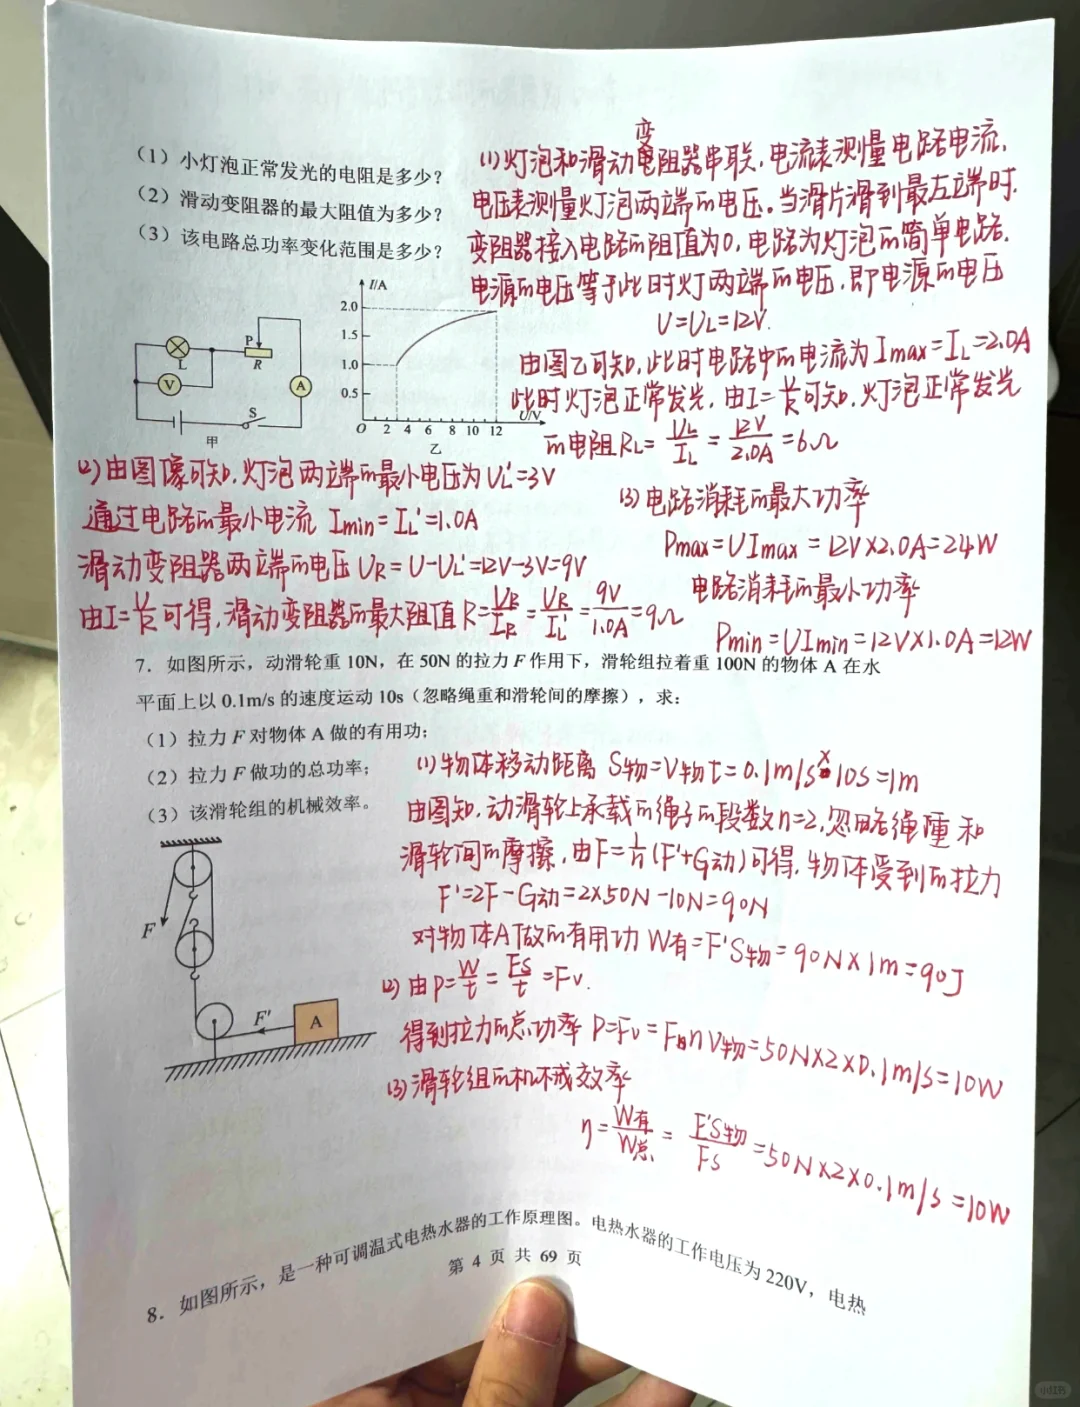 (1) 小灯泡正常发光的电阻是多少?
(2) 滑动变阻器的最大阻值为多少?
(3) 该电路总功率变化范围是多少?
变
(1)灯泡和滑动电阻器串联,电流表测量电路电流,
电压表测量灯泡两端的电压。当滑片滑到最左端时,
变阻器接入电路的阻值为0,电路为灯泡的简单电路.
电源的电压等于此时灯两端的电压,即电源的电压
U=UL=12V.
由图乙可知,此时电路中的电流为Imax=IL=2.0A
此时灯泡正常发光,由I=U/R可知,灯泡正常发光
的电阻RL=UL/IL=12V/2.0A=6Ω
L
V
P
R
A
S
甲
I/A
2.0
1.5
1.0
0.5
O 2 4 6 8 10 12
U/V
乙
(2)由图像可知,灯泡两端的最小电压为UL'=3V
通过电路的最小电流 Imin=IL'=1.0A
滑动变阻器两端的电压 UR=U-UL'=12V-3V=9V
由I=U/R可得,滑动变阻器的最大阻值R=UR/IR=UR/IL'=9V/1.0A=9Ω
(3)电路消耗的最大功率
Pmax=UImax=12V×2.0A=24W
电路消耗的最小功率
Pmin=UImin=12V×1.0A=12W
7. 如图所示,动滑轮重 10N,在 50N 的拉力 F 作用下,滑轮组拉着重 100N 的物体 A 在水
平面上以 0.1m/s 的速度运动 10s(忽略绳重和滑轮间的摩擦),求:
(1)拉力 F 对物体 A 做的有用功;
(2)拉力 F 做功的总功率;
(3)该滑轮组的机械效率。
F
F'
A
(1)物体移动距离 S物=V物t=0.1m/s×10s=1m
由图知,动滑轮上承载的绳子的段数n=2,忽略绳重和
滑轮间的摩擦,由F=1/n(F'+G动)可得,物体受到的拉力
F'=2F-G动=2×50N-10N=90N
对物体A做的有用功 W有=F'S物=90N×1m=90J
(2)由P=W/t=Fs/t=Fv.
得到拉力的总功率 P=Fv=FnV物=50N×2×0.1m/s=10W
(3)滑轮组的机械效率
η=W有/W总=F'S物/Fs=50N×2×0.1m/s=10W
8. 如图所示,是一种可调温式电热水器的工作原理图。电热水器的工作电压为 220V,电热
第 4 页 共 69 页
小红书